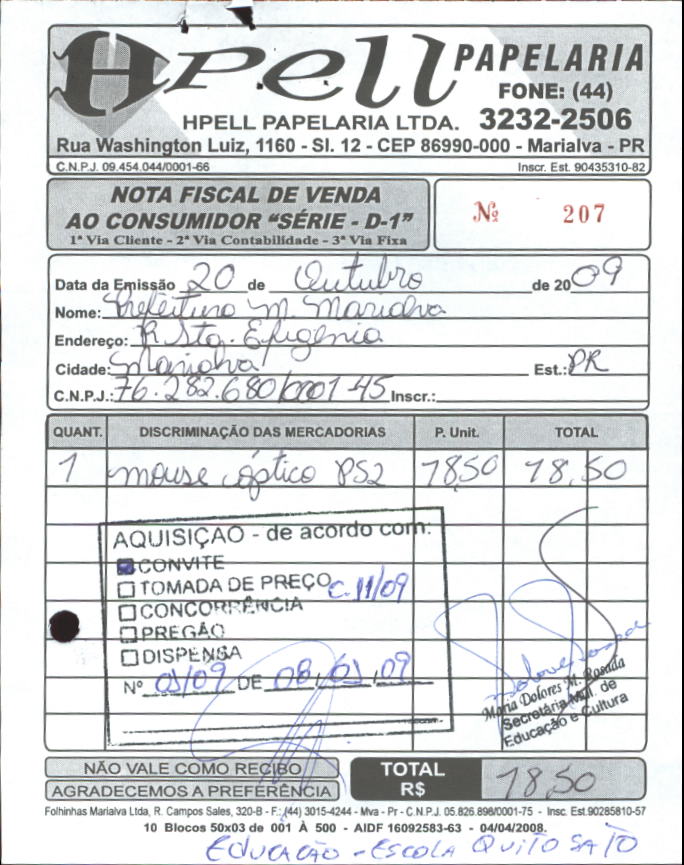 Hpell PAPELARIA
FONE: (44)
HPELL PAPELARIA LTDA. 3232-2506
Rua Washington Luiz, 1160 - Sl. 12 - CEP 86990-000 - Marialva - PR
C.N.P.J. 09.454.044/0001-66 Inscr. Est. 90435310-82
NOTA FISCAL DE VENDA
AO CONSUMIDOR "SÉRIE - D-1"
1ª Via Cliente - 2ª Via Contabilidade - 3ª Via Fixa
Nº 207
Data da Emissão 20 de Outubro de 2009
Nome: Prefeitura M. Marialva
Endereço: R Sta. Efigenia
Cidade: Marialva Est.: PR
C.N.P.J.: 76.282.680/0001-45 Inscr.:
QUANT. DISCRIMINAÇÃO DAS MERCADORIAS P. Unit. TOTAL
1 mouse óptico PS2 18,50 18,50
AQUISIÇAO - de acordo com:
CONVITE
TOMADA DE PREÇO C. 11/09
CONCORRÊNCIA
PREGÃO
DISPENSA
Nº 01/09 DE 08, 01, 09
Maria Dolores M. Rosada
Secretária Mul. de
Educação e Cultura
NÃO VALE COMO RECIBO
AGRADECEMOS A PREFERÊNCIA
TOTAL R$ 18,50
Folhinhas Marialva Ltda, R. Campos Sales, 320-B - F.: (44) 3015-4244 - Mva - Pr - C.N.P.J. 05.826.898/0001-75 - Insc. Est.90285810-57
10 Blocos 50x03 de 001 À 500 - AIDF 16092583-63 - 04/04/2008.
EDUCAÇÃO - ESCOLA QUITO SATO